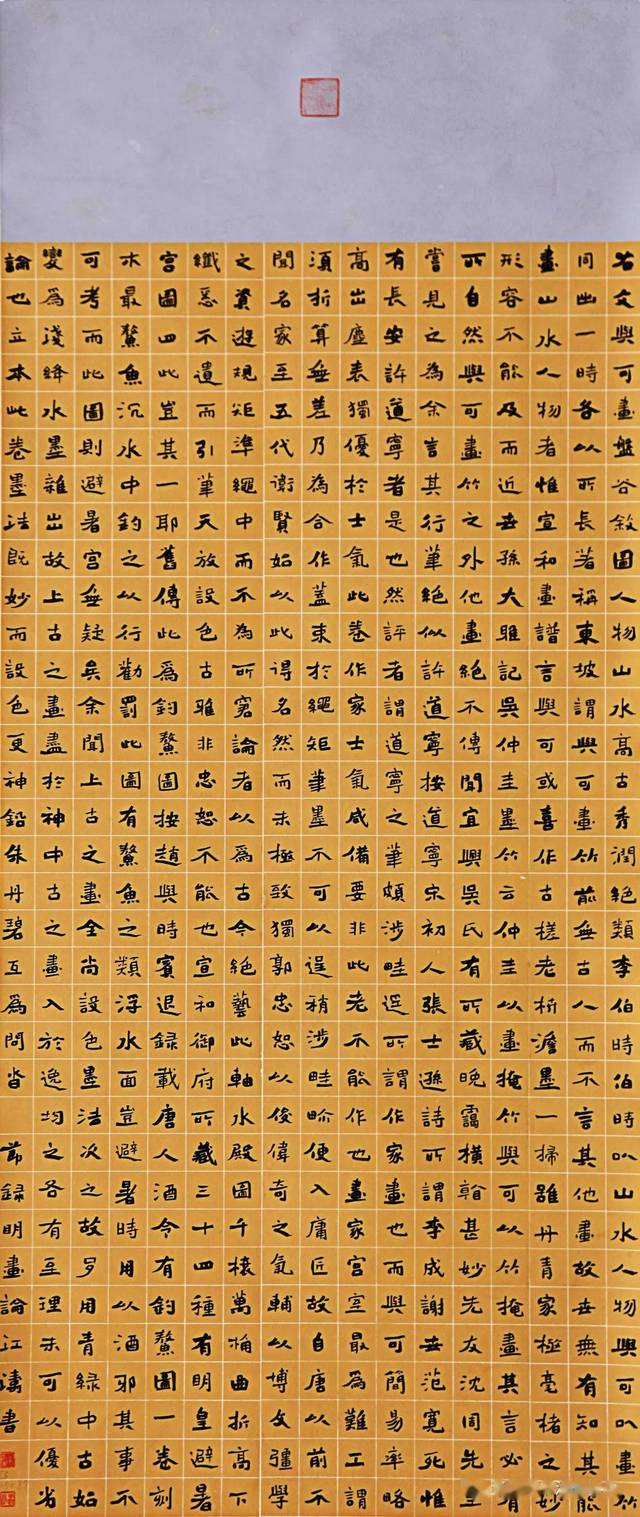 右文與可畫盤谷敘圖人物山水高古秀潤絕類李伯時伯時以山水人物與可以畫竹
同出一時各以所長著稱東坡謂與可畫竹前無古人而不言其他畫故世無有知其能
畫山水人物者惟宣和畫譜言與可或喜作古槎老枿澹墨一掃雖丹青家極毫楮之妙
形容不能及而近世孫大雅記吳仲圭墨竹云仲圭以畫掩竹與可以竹掩畫其言必有
所自然與可畫竹之外他畫絕不傳聞宜興吳氏有所藏晚靄橫翰甚妙先友沈同先生
嘗見之為余言其行筆絕似許道寧按道寧宋初人張士遜詩所謂李成謝世范寬死惟
有長安許道寧者是也然評者謂道寧之筆頗涉畦逕所謂作家畫也而與可簡易率略
高出塵表獨優於士氣此卷作家士氣咸備要非此老不能作也畫家宮室最為難工謂
須折算無差乃為合作蓋束於繩矩筆墨不可以逞稍涉畦畛便入庸匠故自唐以前不
聞名家至五代衛賢始以此得名然而未極致獨郭忠恕以俊偉奇之氣輔以博文彊學
之資遊規矩準繩中而不為所窘論者以為古今絕藝此軸水殿圖千榱萬桷曲折高下
纖悉不遺而引筆天放設色古雅非忠恕不能也宣和御府所藏三十四種有明皇避暑
宮圖四此豈其一耶舊傳此為釣鰲圖按趙與時賓退錄載唐人酒令有釣鰲圖一卷刻
木最鰲魚沉水中釣之以行勸罰此圖有鰲魚之類浮水面豈避暑時用以酒邪其事不
可考而此圖則避暑宮無疑矣余聞上古之畫全尚設色墨法次之故多用青綠中古始
變為淺絳水墨雜出故上古之畫盡於神中古之畫入於逸均之各有至理未可以優劣
論也立本此卷墨法既妙而設色更神鉛朱丹碧互為間沓 節錄明畫論江濤書